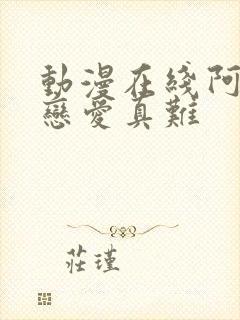 動漫在綫阿
戀愛真難
莊瑾